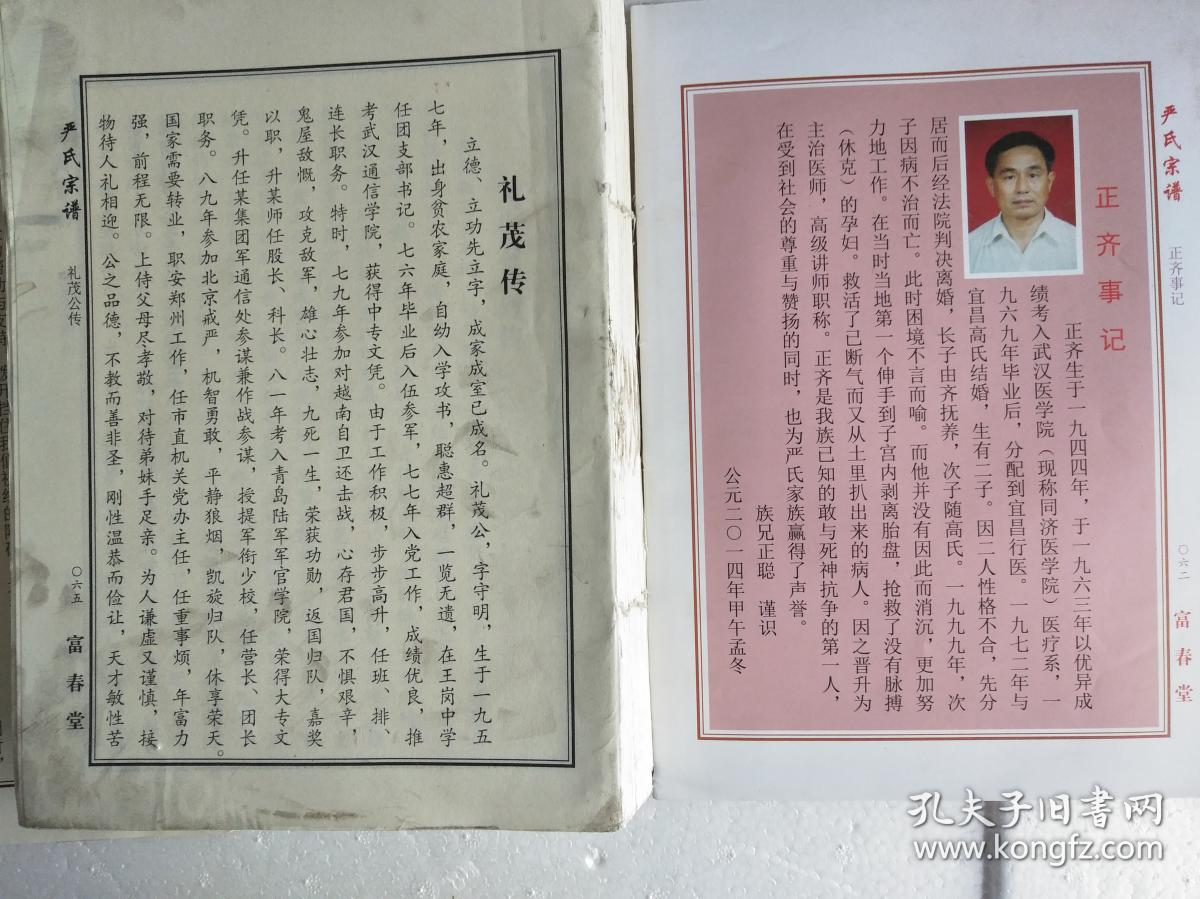 严氏宗谱
正齐事记
〇六二
富春堂
正齐事记
正齐生于一九四四年，于一九六三年以优异成
绩考入武汉医学院（现称同济医学院）医疗系，一
九六九年毕业后，分配到宜昌行医。一九七二年与
宜昌高氏结婚，生有二子。因二人性格不合，先分
居而后经法院判决离婚，长子由齐抚养，次子随高氏。一九九九年，次
子因病不治而亡。此时困境不言而喻。而他并没有因此而消沉，更加努
力地工作。在当时当地第一个伸手到子宫内剥离胎盘，抢救了没有脉搏
（休克）的孕妇。救活了已断气而又从土里扒出来的病人。因之晋升为
主治医师，高级讲师职称。正齐是我族已知的敢与死神抗争的第一人，
在受到社会的尊重与赞扬的同时，也为严氏家族赢得了声誉。
族兄正聪 谨识
公元二〇一四年甲午孟冬
礼茂传
立德、立功先立字，成家成室已成名。礼茂公，字守明，生于一九五
七年，出身贫农家庭，自幼入学攻书，聪惠超群，一览无遗，在王岗中学
任团支部书记。七六年毕业后入伍参军，七七年入党工作，成绩优良，推
考武汉通信学院，获得中专文凭。由于工作积极，步步高升，任班、排、
连长职务。特时，七九年参加对越南自卫还击战，心存君国，不惧艰辛，
鬼屋敌慨，攻克敌军，雄心壮志，九死一生，荣获功勋，返国归队，嘉奖
以职，升某师任股长、科长。八一年考入青岛陆军军官学院，荣得大专文
凭。升任某集团军通信处参谋兼作战参谋，授提军衔少校，任营长、团长
职务。八九年参加北京戒严，机智勇敢，平静狼烟，凯旋归队，休享荣天。
国家需要转业，职安郑州工作，任市直机关党办主任，任重事烦，年富力
强，前程无限。上侍父母尽孝敬，对待弟妹手足亲。为人谦虚又谨慎，接
物待人礼相迎。公之品德，不教而善非圣，刚性温恭而俭让，天才敏性苦
严氏宗谱
礼茂公传
〇六五
富春堂
孔夫子旧书网
www.kongfz.com